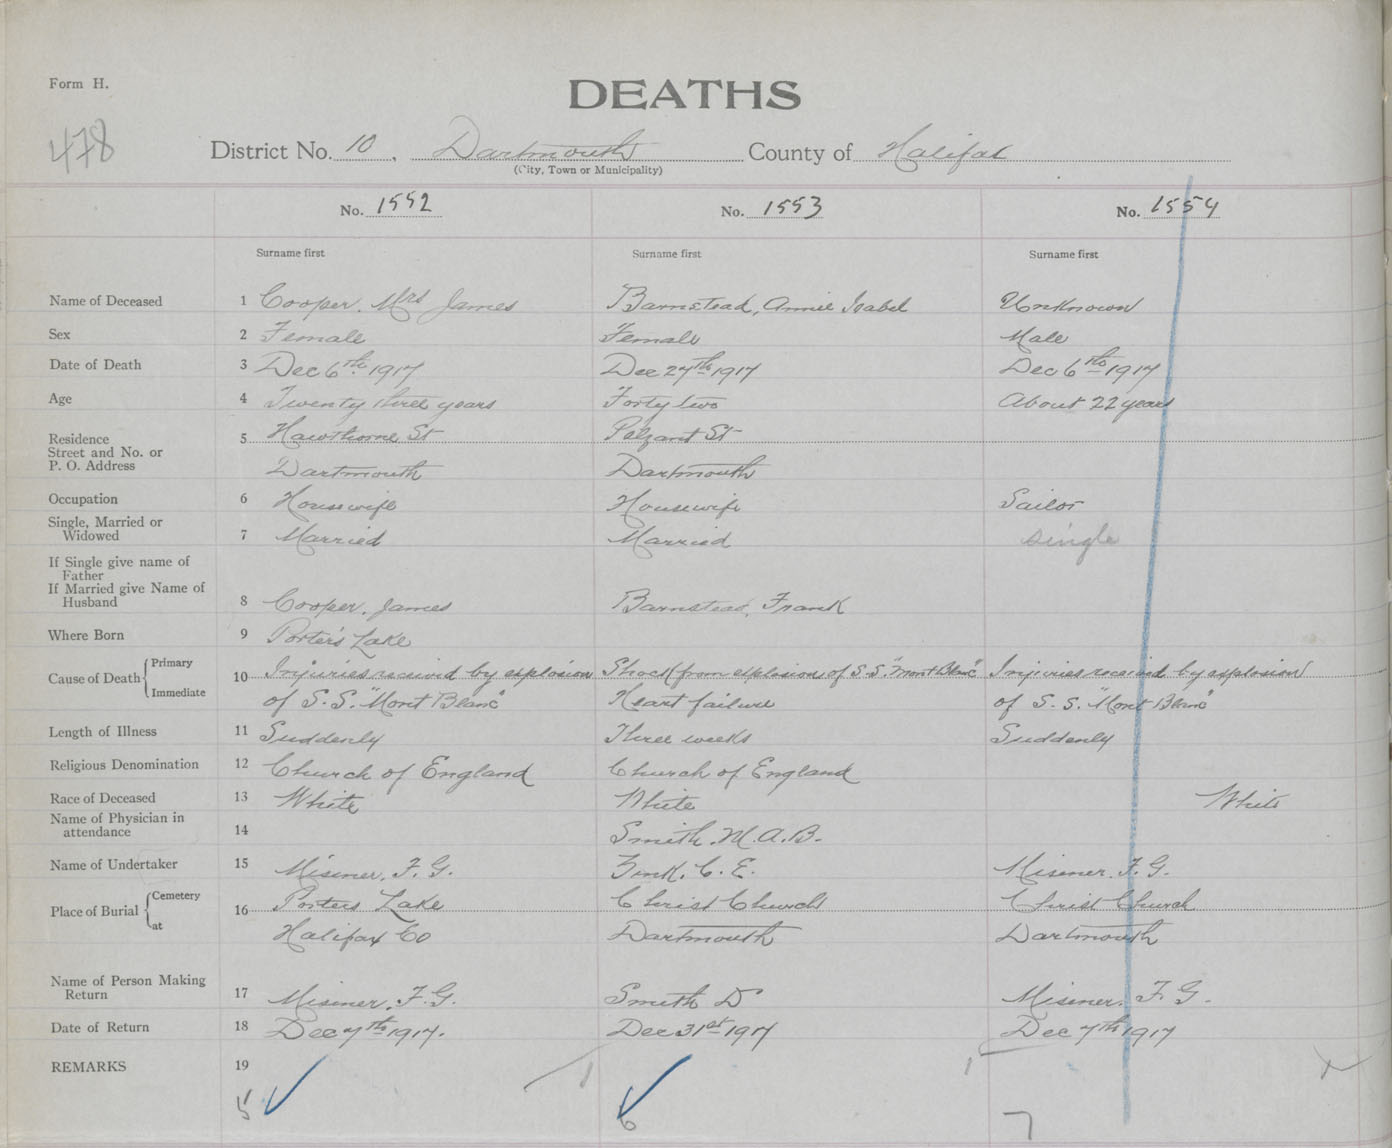 Form H.
DEATHS
478
District No. 10, Dartmouth County of Halifax
(City, Town or Municipality)
No. 1552 No. 1553 No. 1554
Surname first Surname first Surname first
Name of Deceased 1 Cooper, Mrs James Barnstead, Annie Isabel Unknown
Sex 2 Female Female Male
Date of Death 3 Dec 6th 1917 Dec 27th 1917 Dec 6th 1917
Age 4 Twenty three years Forty two About 22 years
Residence 5 Hawthorne St Pelzant St
Street and No. or
P. O. Address Dartmouth Dartmouth
Occupation 6 Housewife Housewife Sailor
Single, Married or
Widowed 7 Married Married single
If Single give name of
Father
If Married give Name of
Husband 8 Cooper, James Barnstead, Frank
Where Born 9 Porter's Lake
Cause of Death Primary 10 Injuries received by explosion Shock from explosion of S.S. "Mont Blanc" Injuries received by explosion
Immediate of S.S. "Mont Blanc" Heart failure of S.S. "Mont Blanc"
Length of Illness 11 Suddenly Three weeks Suddenly
Religious Denomination 12 Church of England Church of England
Race of Deceased 13 White White White
Name of Physician in
attendance 14 Smith, M.A.B.
Name of Undertaker 15 Misener, F.G. Zink, C.E. Misener, F.G.
Place of Burial Cemetery 16 Porters Lake Christ Church Christ Church
at Halifax Co Dartmouth Dartmouth
Name of Person Making
Return 17 Misener, F.G. Smith D Misener, F.G.
Date of Return 18 Dec 7th 1917. Dec 31st 1917 Dec 7th 1917
REMARKS 19
5 6 7